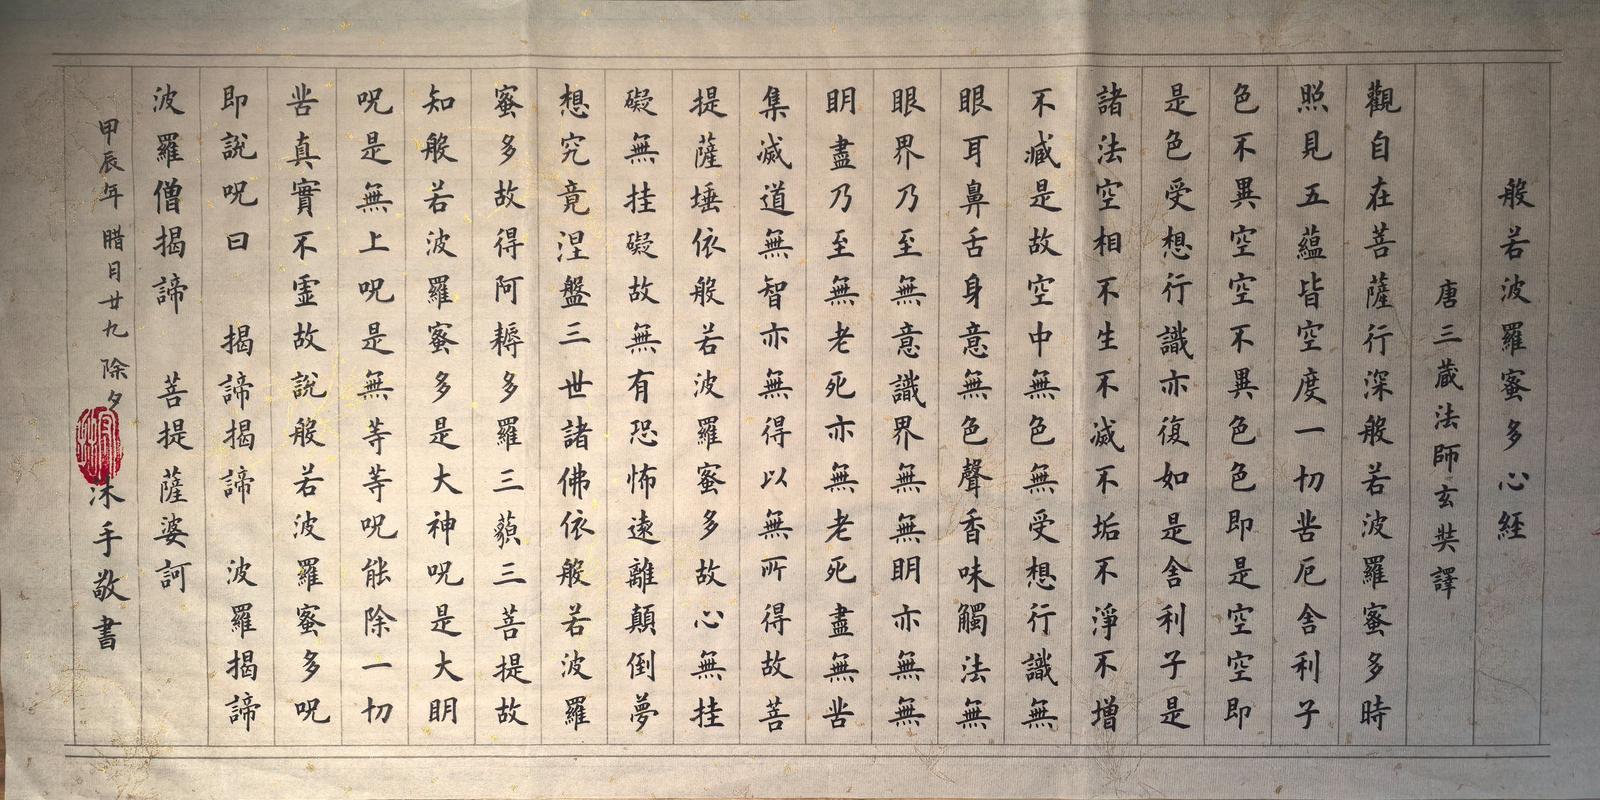 般若波羅蜜多心経
唐三蔵法師玄奘譯
觀自在菩薩行深般若波羅蜜多時
照見五蘊皆空度一切苦厄舎利子
色不異空空不異色色即是空空即
是色受想行識亦復如是舎利子是
諸法空相不生不滅不垢不淨不增
不減是故空中無色無受想行識無
眼耳鼻舌身意無色聲香味觸法無
眼界乃至無意識界無無明亦無無
明盡乃至無老死亦無老死盡無苦
集滅道無智亦無得以無所得故菩
提薩埵依般若波羅蜜多故心無挂
礙無挂礙故無有恐怖遠離顛倒夢
想究竟涅盤三世諸佛依般若波羅
蜜多故得阿耨多羅三藐三菩提故
知般若波羅蜜多是大神呪是大明
呪是無上呪是無等等呪能除一切
苦真實不虛故說般若波羅蜜多呪
即說呪曰 揭諦揭諦 波羅揭諦
波羅僧揭諦 菩提薩婆訶
甲辰年 腊月廿九 除夕 沐手敬書